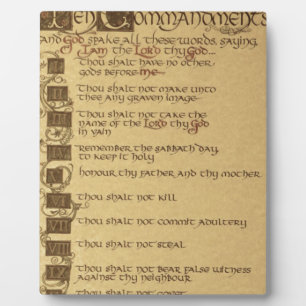 Ten Commandments
and God spake all these words, saying
I am the Lord thy God...
I Thou shalt have no other
gods before me
II Thou shalt not make unto
thee any graven image
III Thou shalt not take the
name of the Lord thy God
in vain
IV Remember the sabbath day
to keep it holy
V honour thy father and thy mother
VI Thou shalt not kill
VII Thou shalt not commit adultery
VIII Thou shalt not steal
IX Thou shalt not bear false witness
against thy neighbour
Thou shalt not covet